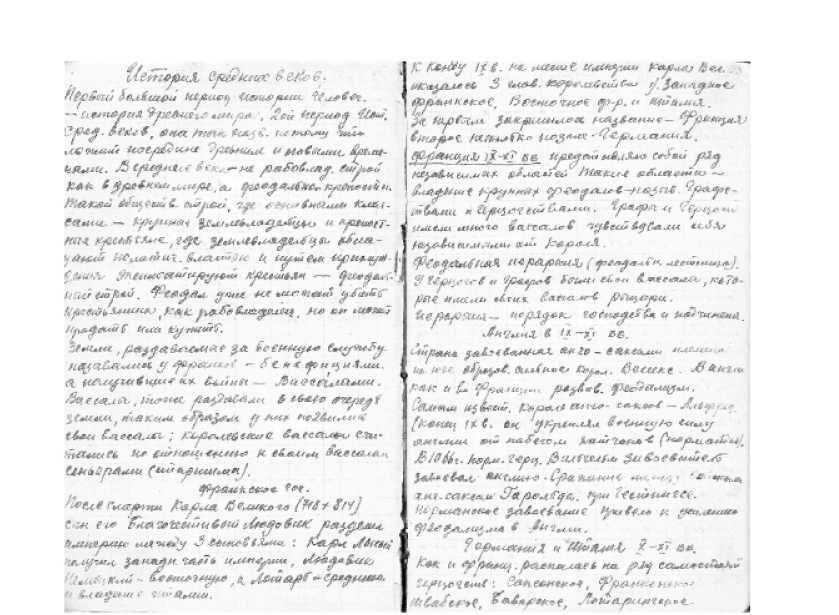 История средних веков.
Первый большой период истории человеч.
— история древнего мира, 2ой период Ист.
сред. веков, она так назв. потому что
лежит посредине древним и новыми време-
нами. В средние века — не рабовлад. строй
как в древнем мире, а феодально-крепостн.
Такой обществ. строй, где основными клас-
сами — крупные землевладельцы и крепост-
ные крестьяне, где землевладельцы обла-
дают политич. властью и путем принуж-
дения эксплоатируют крестьян — феодаль-
ный строй. Феодал уже не может убить
крестьянина, как рабовладелец, но он может
продать или купить.
Земли, раздаваемые за военную службу
назывались у франков — бенефициями.
а получившие их воины — Вассалами.
Вассалы, тоже раздавали в свою очередь
земли, таким образом у них появились
свои вассалы; королевские вассалы счи-
тались по отношению к своим вассалам
сеньорами (старшими).
Франкское гос.
После смерти Карла Великого (768 + 814)
сын его Благочестивый Людовик разделил
империю между 3 сыновьями: Карл Лысый
получил западн. часть империи, Людовик
Немецкий — восточную, а Лотарь — среднюю
и владение Итали.
К концу IX в. на месте империи Карла Вел.
оказалось 3 глав. королевства Западное
франкское, Восточное фр. и Италия.
За первым закрепилось название — Франция
второе начатко позже — Германия.
Франция IX-XI вв представляло собой ряд
независимых областей Такие области —
владение крупных феодалов — назыв. Графс-
твами и Герцогствами. Графы и Герцоги
имели много вассалов чувствовали себя
независимыми от Короля.
Феодальная иерархия (феодальн лестница).
У герцогов и графов были свои вассалы, кото-
рые имели своих васалов рыцари.
Иерархия — порядок господства и подчинения.
Англия в IX-XI вв.
Страна завоеванная англо-саксами
на нее образов. сильное корол. Вессекс. В Англии
как и во Франции развив. феодализм.
Самым извест. Королем англо-саксов — Альфред.
(конец IX в. он укрепил военную силу
англии от набегов датчанов (норматов).
В 1066г. норм. герц. Вильгельм Завоеватель
завоевал англию. Сражение между
англ. саксам Гарольда, при Гестингсе.
Норманское завоевание привело к усилению
феодализма в Англии.
Германия и Италия X-XI вв.
Как и франц. распалась на ряд самостоят
герцогств: Саксонское, Франконское
Швабское, Баварское, Лотарингское